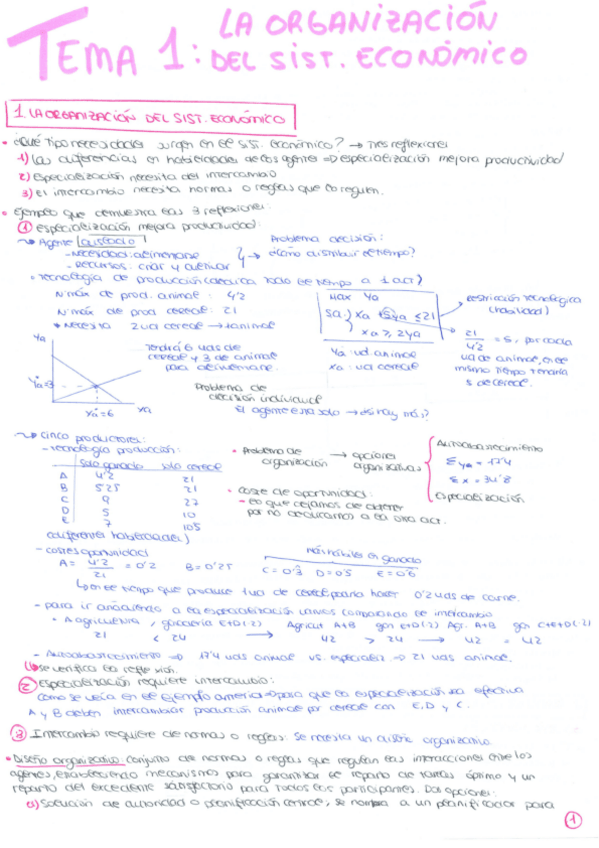 TEMA 1: LA ORGANIZACIÓN
DEL SIST. ECONÓMICO
1. LA ORGANIZACIÓN DEL SIST. ECONÓMICO
• ¿Qué tipo necesidades surgen en el sist. económico? → Tres reflexiones
1) Las diferencias en habilidades de los agentes ⇒ especialización mejora productividad
2) Especialización necesita del intercambio
3) El intercambio necesita normas o reglas que lo regulen.
• Ejemplo que demuestra las 3 reflexiones:
① especialización mejora productividad:
Agente aislado
- Necesidad: alimentarse
- Recursos: criar y cultivar
Problema decisión:
¿cómo distribuir el tiempo?
• Tecnología de producción (dedica todo el tiempo a 1 act)
Nº máx de prod. animal: 4'2
Nº máx de prod cereal: 21
* Necesita 2 ud cereal → 1 animal
Max Ya
s.a. Xa + 5Ya ≤ 21
Xa ≥ 2Ya
Ya: ud. animal
Xa: ud cereal
restricción tecnológica
(habilidad)
21/4'2 = 5, por cada
ud de animal, en el
mismo tiempo tendría
5 de cereal.
Ya
Ya=3
Xa=6
Xa
Tendrá 6 uds de
cereal y 3 de animal
para alimentarse.
Problema de
decisión individual
El agente está solo → ¿si hay más?
Cinco productores:
- tecnología producción:
solo ganado solo cereal
A 4'2 21
B 5'25 21
C 9 27
D 5 10
E 7 10'5
(diferentes habilidades)
• Problema de organización → opciones organizativas
Autoabastecimiento
Σ Ya = 17'4
Σ X = 34'8
Especialización
• Coste de oportunidad:
- lo que dejamos de obtener
por no dedicarnos a la otra act.
- costes oportunidad
más hábiles en ganado
A = 4'2/21 = 0'2 B = 0'25 C = 0'3 D = 0'5 E = 0'6
↳ en el tiempo que produce 1 ud de cereal podría hacer 0'2 uds de carne.
- para ir añadiendo a la especialización vamos comparando el intercambio
• A agricultura, ganadería E+D(2) Agricult A+B gan E+D(2) Agr. A+B gan C+E+D(2)
21 < 24 → 42 > 24 → 42 = 42
- Autoabastecimiento ⇒ 17'4 uds animal vs. especializ ⇒ 21 uds animal.
↳ se verifica la reflexión.
② Especialización requiere intercambio:
Como se veía en el ejemplo anterior ⇒ para que la especialización sea efectiva
A y B deben intercambiar producción animal por cereal con E, D y C.
③ Intercambio requiere de normas o reglas: Se necesita un diseño organizativo
• Diseño organizativo: conjunto de normas o reglas que regulan las interacciones entre los
agentes, estableciendo mecanismos para garantizar el reparto de tareas óptimo y un
reparto del excedente satisfactorio para todos los participantes. Dos opciones:
a) Solución de autoridad o planificación central, se nombra a un planificador para
1